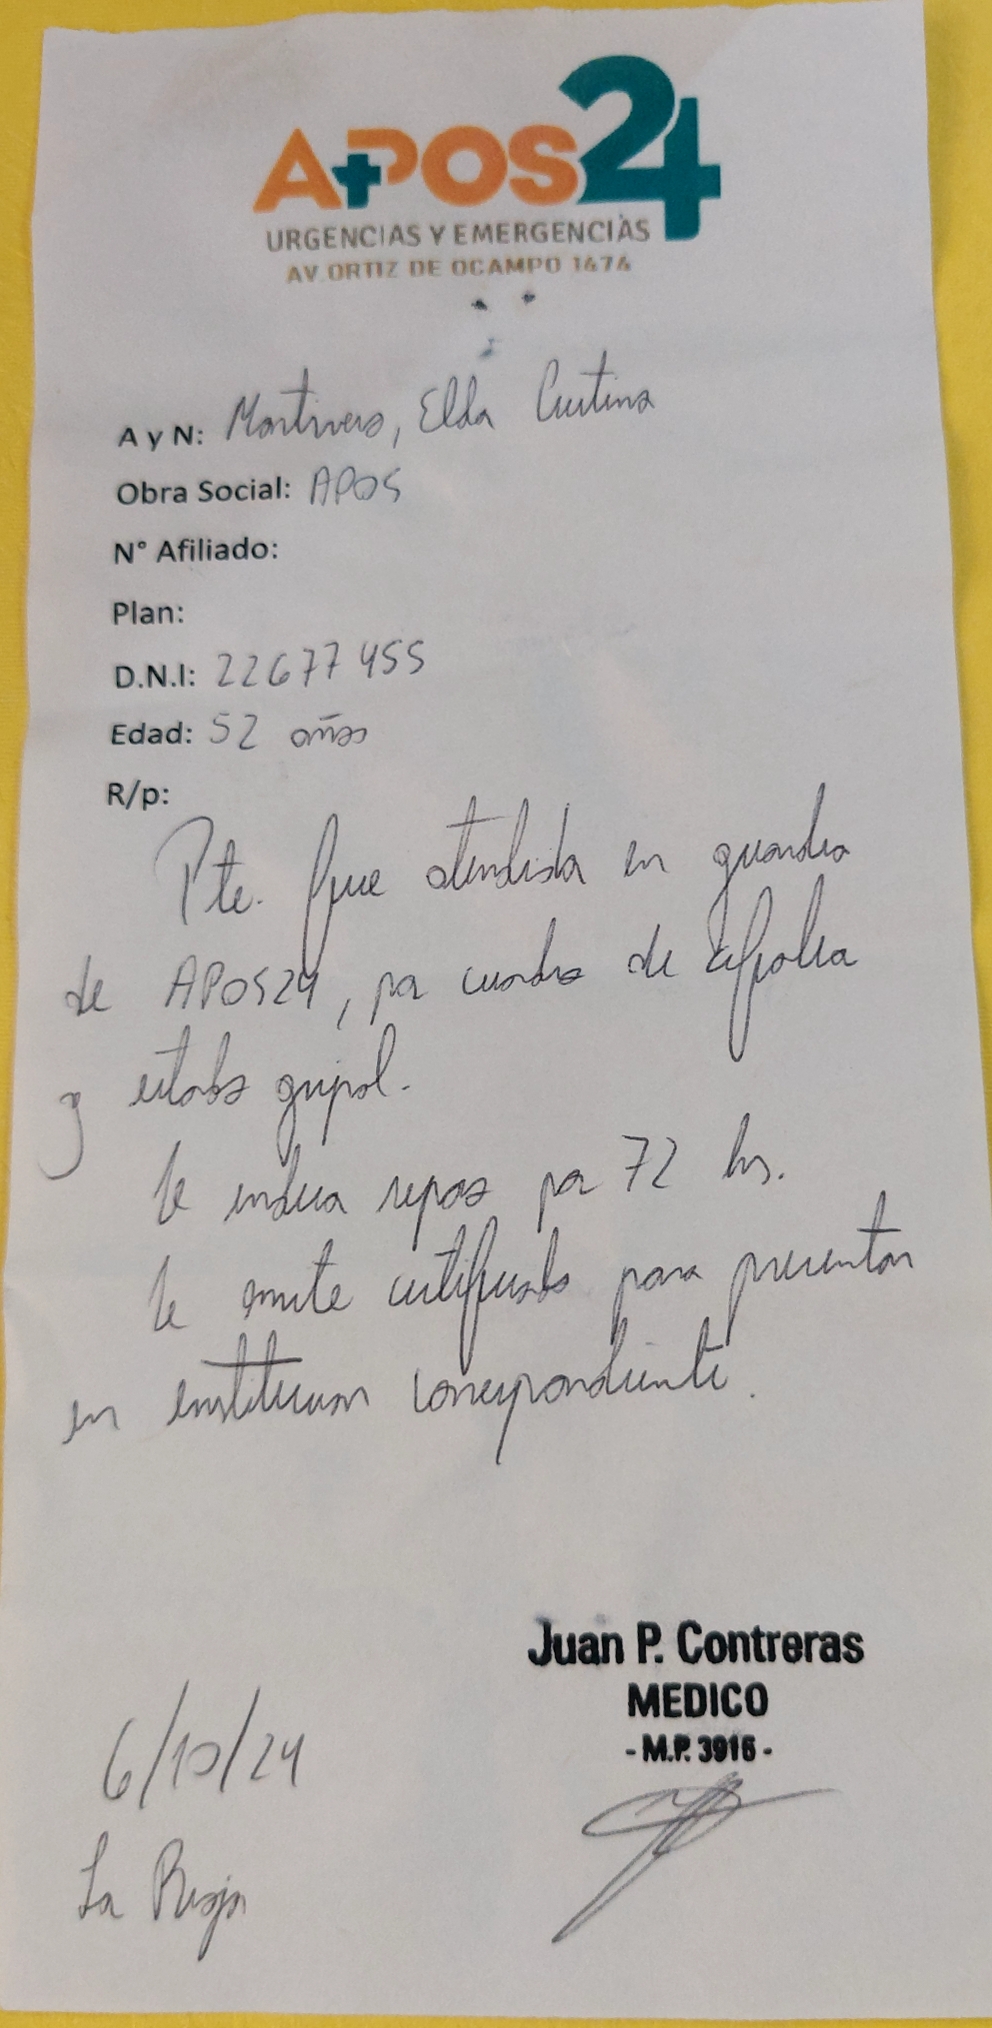 APOS24
URGENCIAS Y EMERGENCIAS
AV. ORTIZ DE OCAMPO 1474
A y N: Martinero, Elda Cristina
Obra Social: APOS
N° Afiliado:
Plan:
D.N.I: 22677455
Edad: 52 años
R/p:
Pte. fue atendida en guardia
de APOS24, por cuadro de cefalea
y estado gripal.
Se indica reposo por 72 hs.
Se emite certificado para presentar
en institucion correspondiente.
Juan P. Contreras
MEDICO
- M.P. 3916 -
6/10/24
La Rioja